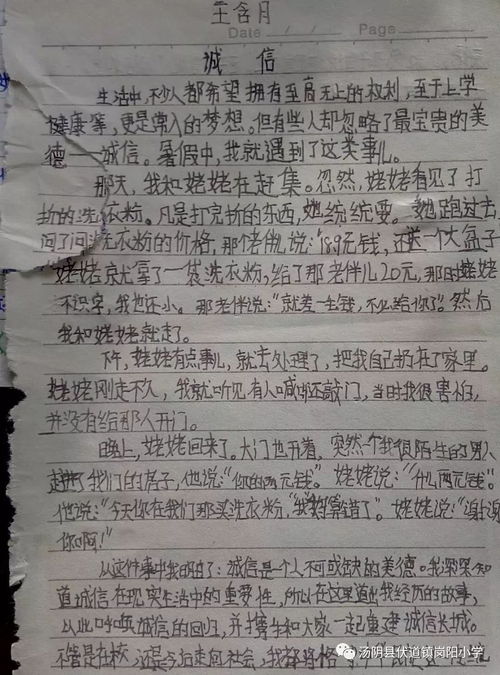 王含月
Date / / Page
诚 信
生活中,不少人都希望拥有至高无上的权利,至于上学
健康等,更是常人的梦想。但有些人却忽略了最宝贵的美
德——诚信。暑假中,我就遇到了这类事儿。
那天,我和姥姥在赶集。忽然,姥姥看见了打
折的洗衣粉。凡是打完折的东西,她统统要。她跑过去
问了问洗衣粉的价格,那个老伴儿说:"18.9元钱,还送一个大盆子
姥姥就拿了一袋洗衣粉,给了那老伴儿20元,那时姥姥
不识字,我也还小。那老伴说:"就差一块钱,不必给你了"。然后
我和姥姥就走了。
下午,姥姥有点事儿,就去处理了,把我自己扔在了家里。
姥姥刚走不久,我就听见有人喊还敲门,当时我很害怕,
并没有给那人开门。
晚上,姥姥回来了。大门也开着,突然个我很陌生的男人
进了我们的房子,他说:"你的两元钱"。姥姥说:"什么两元钱"。
他说:"今天你在我们那买洗衣粉,我算错了"。姥姥说:"谢谢
你啊!"
从这件事中我明白了:诚信是个人不可或缺的美德。我深深知
道诚信在现实生活中的重要性,所以在这里道出我经历的故事,
以此呼唤诚信的回归,并携手和大家一起重建诚信长城。
不管是在校,还是今后走向社会,我都将
汤阴县伏道镇岗阳小学